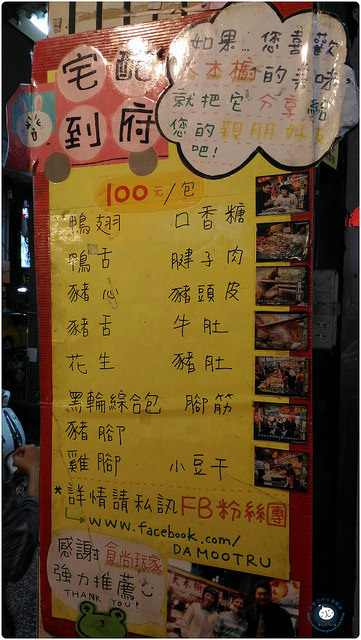 如果…您喜歡
大木櫥的美味,
就把它分享給
您的親朋好友
吧!
宅配
到府
100元/包
鴨翅 口香糖
鴨舌 腱子肉
豬心 豬頭皮
豬舌 牛肚
花生 豬肚
黑輪綜合包 腳筋
豬腳
雞腳 小豆干
*詳情請私訊FB粉絲團
www.facebook.com/
DAMOOTRU
感謝食尚玩家
強力推薦
THANK YOU!